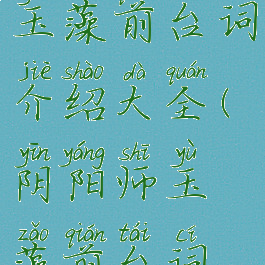 玉藻前台词
jiè shào dà quán
介绍大全(
yīn yáng shī yù
阴阳师玉
zǎo qián tái cí
藻前台词